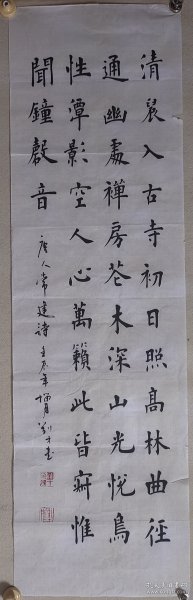 清晨入古寺初日照高林曲徑
通幽處禪房花木深山光悅鳥
性潭影空人心萬籟此皆寂惟
聞鐘聲音
唐人常建詩